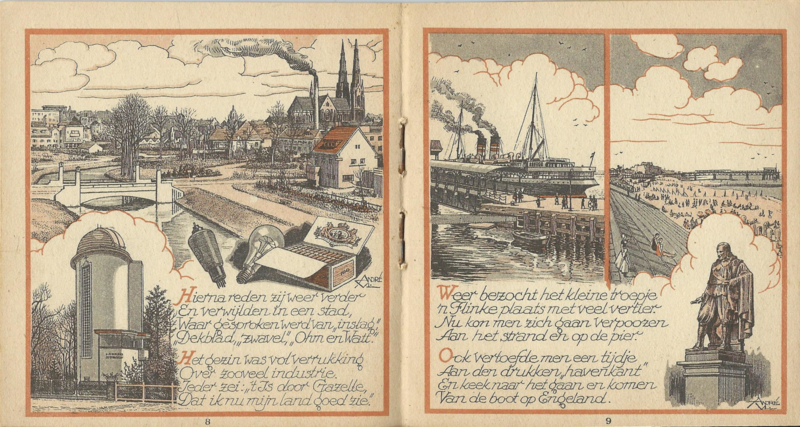 Hierna reden zij weer verder
En verwijlden in een stad,
Waar gesproken werd van „inslag,"
Dekblad,„zwavel,"„Ohm en Watt."
Het gezin was vol verrukking
Over zooveel industrie.
Ieder zei:„'t Is door Gazelle,
Dat ik nu mijn land goed zie."
8
Weer bezocht het kleine troepje
'n Flinke plaats met veel vertier.
Nu kon men zich gaan verpoozen
Aan het strand en op de pier.
Ook vertoefde men een tijdje
Aan den drukken „havenkant"
En keek naar het gaan en komen
Van de boot op Engeland.
9
ANDRÉ
ANDRÉ